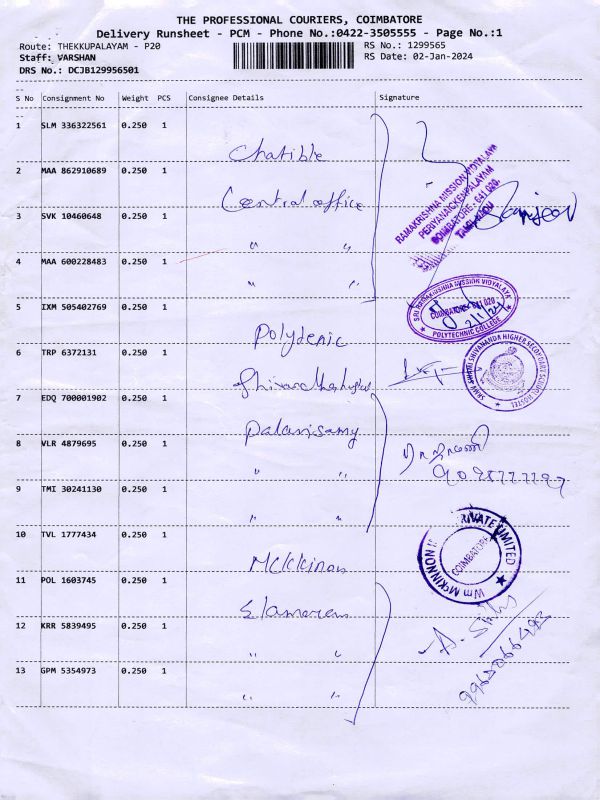 THE PROFESSIONAL COURIERS, COIMBATORE
Delivery Runsheet - PCM - Phone No.:0422-3505555 - Page No.:1
Route: THEKKUPALAYAM - P20
RS No.: 1299565
Staff: VARSHAN
RS Date: 02-Jan-2024
DRS No.: DCJB129956501
S No Consignment No Weight PCS Consignee Details Signature
1 SLM 336322561 0.250 1
Chatible
2 MAA 862910689 0.250 1
Central office
3 SVK 10460648 0.250 1
" "
4 MAA 600228483 0.250 1
" "
RAMAKRISHNA MISSION VIDYALAYA
PERIYANAICKENPALAYAM
COIMBATORE - 641 020.
TAMILNADU
5 IXM 505402769 0.250 1
Polytenic
SRI RAMAKRISHNA MISSION VIDYALAYA
COIMBATORE - 641 020
2/1/24
POLYTECHNIC COLLEGE
6 TRP 6372131 0.250 1
7 EDQ 700001902 0.250 1
Palanisamy
8 VLR 4879695 0.250 1
" "
9 TMI 30241130 0.250 1
" "
10 TVL 1777434 0.250 1
Mckkinon
Wm MCKINNON PRIVATE LIMITED
COIMBATORE
11 POL 1603745 0.250 1
12 KRR 5839495 0.250 1
" "
13 GPM 5354973 0.250 1
" "